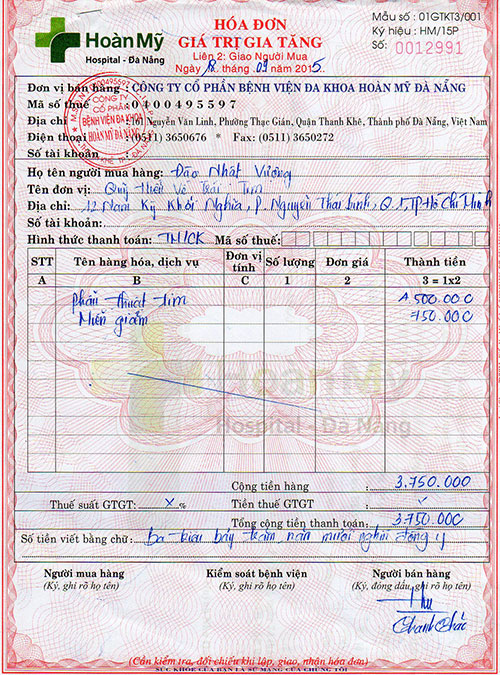 Hoàn Mỹ
Hospital - Đà Nẵng
HÓA ĐƠN
GIÁ TRỊ GIA TĂNG
Liên 2: Giao Người Mua
Ngày 18 tháng 09 năm 2015
Mẫu số : 01GTKT3/001
Ký hiệu : HM/15P
Số: 0012991
Đơn vị bán hàng : CÔNG TY CỔ PHẦN BỆNH VIỆN ĐA KHOA HOÀN MỸ ĐÀ NẴNG
Mã số thuế : 0400495597
Địa chỉ : 161 Nguyễn Văn Linh, Phường Thạc Gián, Quận Thanh Khê, Thành phố Đà Nẵng, Việt Nam
Điện thoại : (0511) 3650676 * Fax: (0511) 3650272
Số tài khoản :
CÔNG TY
CỔ PHẦN
BỆNH VIỆN ĐA KHOA
HOÀN MỸ ĐÀ NẴNG
Họ tên người mua hàng: Đào Nhất Vương
Tên đơn vị: Quỹ Hiền Về Trái Tim
Địa chỉ: 12 Nam Kỳ Khởi Nghĩa, P. Nguyễn Thái Bình, Q.1, TP Hồ Chí Minh
Số tài khoản:
Hình thức thanh toán: TM/CK Mã số thuế:
STT Tên hàng hóa, dịch vụ Đơn vị tính Số lượng Đơn giá Thành tiền
A B C 1 2 3 = 1x2
Phẫu thuật Tim 4.500.000
Miễn giảm 750.000
HoànMỹ
Hospital - Đà Nẵng
Cộng tiền hàng : 3.750.000
Thuế suất GTGT: x % Tiền thuế GTGT :
Tổng cộng tiền thanh toán: 3.750.000
Số tiền viết bằng chữ: Ba triệu bảy trăm năm mươi nghìn đồng y
Người mua hàng Kiểm soát bệnh viện Người bán hàng
(Ký, ghi rõ họ tên) (Ký, ghi rõ họ tên) (Ký, đóng dấu, ghi rõ họ tên)
(Cần kiểm tra, đối chiếu khi lập, giao, nhận hóa đơn)
SỨC KHỎE CỦA BẠN LÀ SỨ MẠNG CỦA CHÚNG TÔI